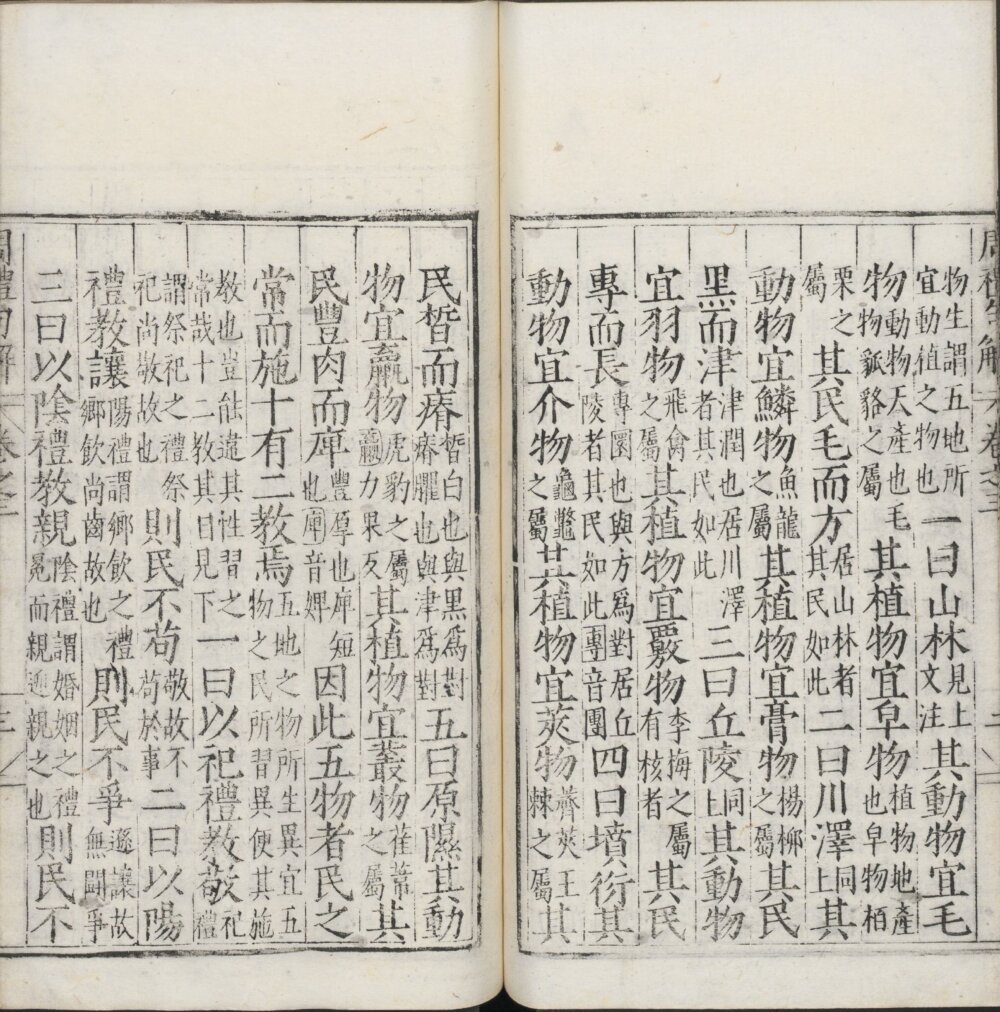 周禮句解 卷之三 三
物生謂五地所宜動植之物也一曰山林見上文注其動物宜毛
物動物天產也毛物貔貉之屬其植物宜皁物植物地產也皁物栢
栗之屬其民毛而方居山林者其民如此二曰川澤同上其
動物宜鱗物魚龍之屬其植物宜膏物楊柳之屬其民
黑而津津潤也居川澤者其民如此三曰丘陵同上其動物
宜羽物飛禽之屬其植物宜覈物李梅之屬有核者其民
專而長專圜也與方爲對居丘陵者其民如此專音團四曰墳衍其
動物宜介物龜鼈之屬其植物宜莢物薺莢王棘之屬其
民晳而瘠晳白也與黑爲對瘠臞也與津爲對五曰原隰其動
物宜臝物虎豹之屬臝力果反其植物宜叢物萑葦之屬其
民豐肉而庳豐厚也庳短也庳音婢因此五物者民之
常而施十有二教焉五地之物所生異宜五物之民所習異便其施
教也豈能違其性習之常哉十二教其目見下一曰以祀禮教敬祀禮
謂祭祀之禮祭祀尚敬故也則民不苟敬故不苟於事二曰以陽
禮教讓陽禮謂鄉飲之禮鄉飲尚齒故也則民不爭遜讓故無鬭爭
三曰以陰禮教親陰禮謂婚姻之禮冕而親迎親之也則民不
周禮句解 卷之三 三